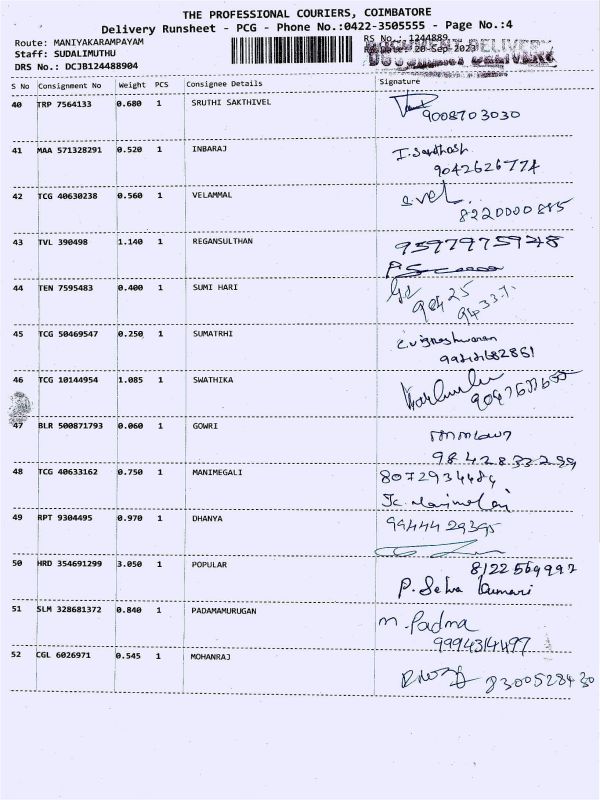 THE PROFESSIONAL COURIERS, COIMBATORE
Delivery Runsheet - PCG - Phone No.:0422-3505555 - Page No.:4
Route: MANIYAKARAMPAYAM
RS No.: 1244889
Staff: SUDALIMUTHU
20-Sep-2023
DOCUMENT DELIVERY
DRS No.: DCJB124488904
S No Consignment No Weight PCS Consignee Details Signature
40 TRP 7564133 0.680 1 SRUTHI SAKTHIVEL
9008703030
41 MAA 571328291 0.520 1 INBARAJ I. Santhosh
9042626774
42 TCG 40630238 0.560 1 VELAMMAL S.vel
8220000885
43 TVL 390498 1.140 1 REGANSULTHAN 9597975948
44 TEN 7595483 0.400 1 SUMI HARI
90425
94337
45 TCG 50469547 0.250 1 SUMATRHI C.vigneshwaran
46 TCG 10144954 1.085 1 SWATHIKA
47 BLR 500871793 0.060 1 GOWRI
9842833299
48 TCG 40633162 0.750 1 MANIMEGALI 8072934484
49 RPT 9304495 0.970 1 DHANYA 9944429395
50 HRD 354691299 3.050 1 POPULAR 8122569997
P. Selva kumari
51 SLM 328681372 0.840 1 PADAMAMURUGAN M. Padma
9994314497
52 CGL 6026971 0.545 1 MOHANRAJ
8300528430